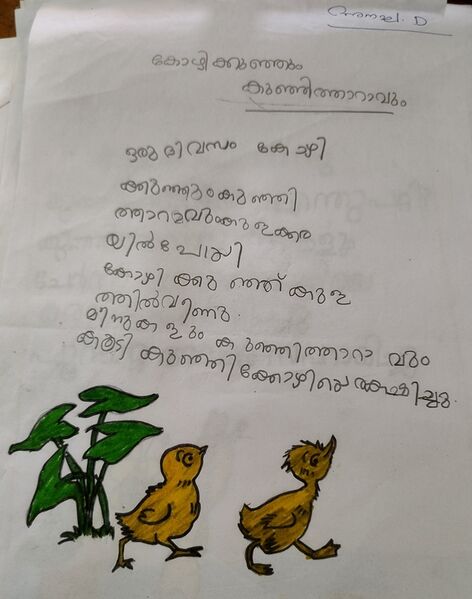 കോഴിക്കുഞ്ഞും
കുഞ്ഞിത്താറാവും
ഒരു ദിവസം കോഴി
ക്കുഞ്ഞുംകുഞ്ഞി
ത്താറാവുംകുളക്കര
യിൽപോയി
കോഴി ക്കു ഞ്ഞ് കുള
ത്തിൽവീണു.
മീനുക ളും കു ഞ്ഞിത്താറാ വും
കൂടി കുഞ്ഞി ക്കോഴിയെ രക്ഷിച്ചു.